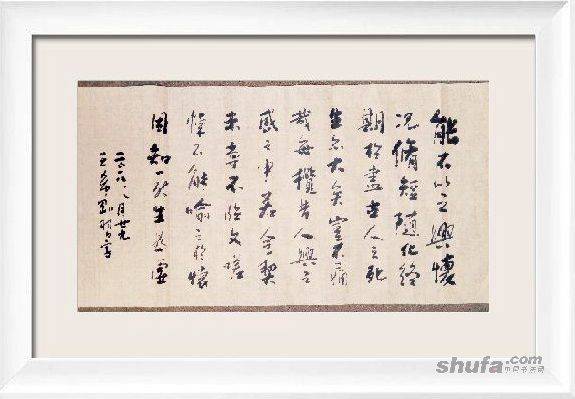 能不以之興懷
况脩短随化終
期於盡古人云死
生亦大矣豈不痛
哉每攬昔人興
感之由若合契
未嘗不臨文嗟
悼不能喻之於懷
固知一死生為虛
月廿九
王
shufa.com
中国书法网